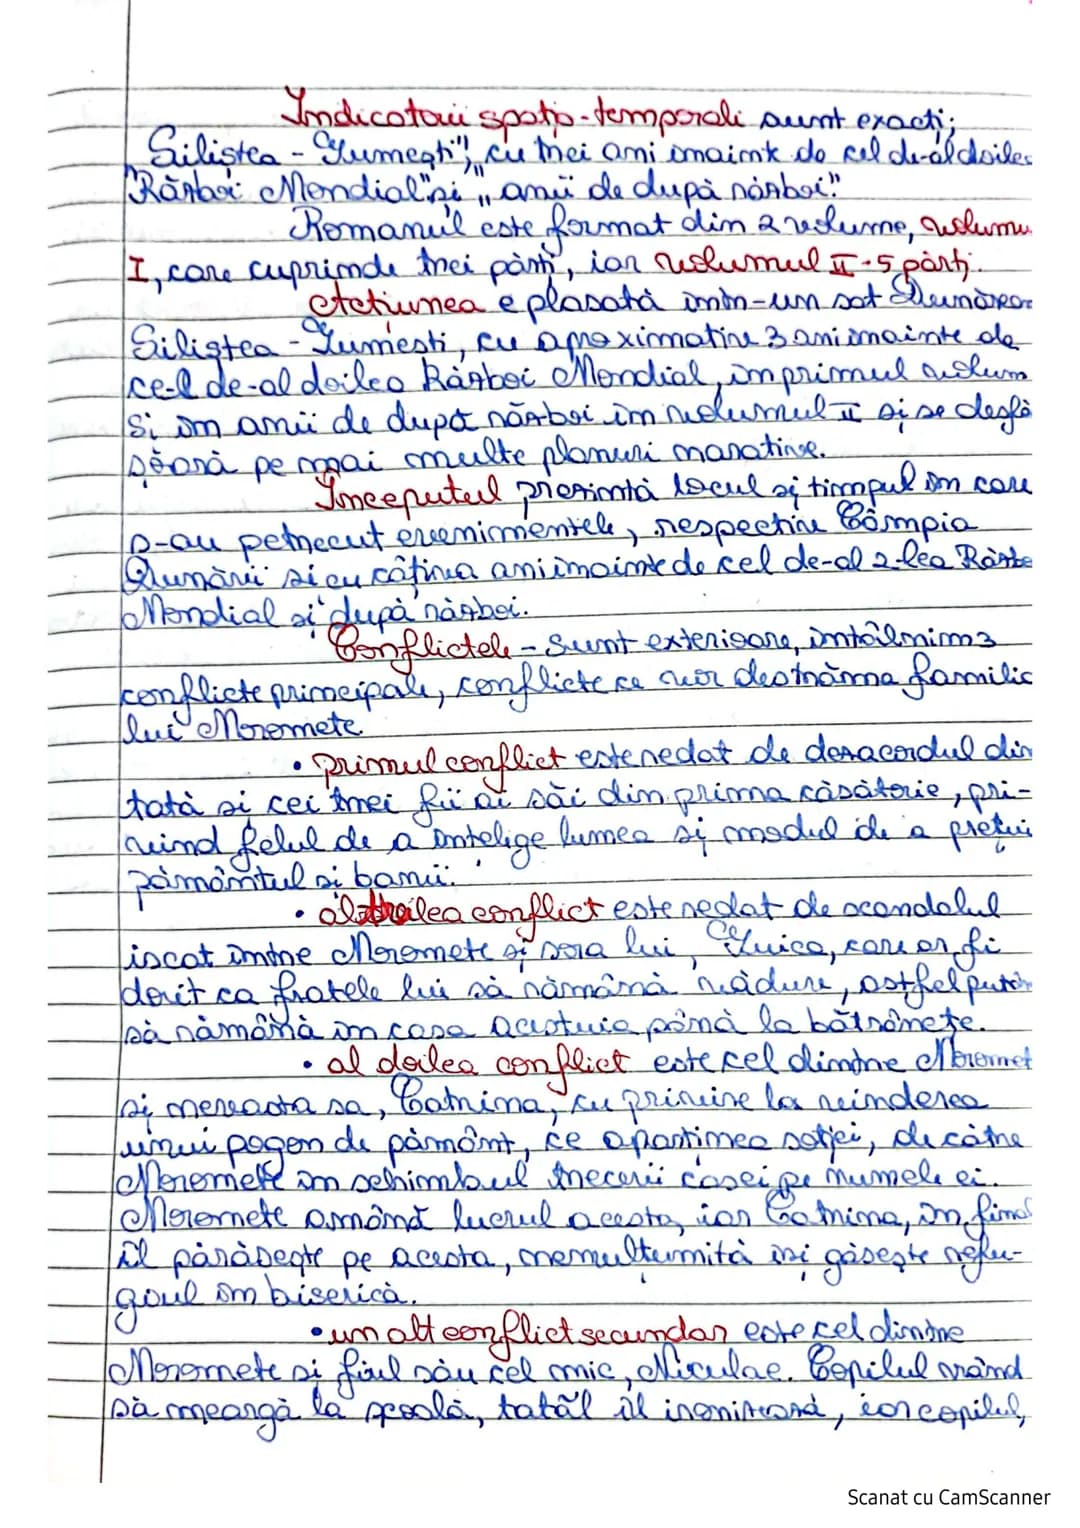 Indicatorii spațio-temporali sunt exacți;
Siliștea-Gumești", cu trei ani înainte de cel de-al doilea
Război Mondial" și „anii de după război".
Romanul este format din 2 volume, volumu
I, care cuprinde trei părți, iar volumul II-5 părți.
Acțiunea e plasată într-un sat Dunărea
Siliștea-Gumești, cu aproximativ 3 ani înainte de
cel de-al doilea Război Mondial, în primul volum
și în anii de după război în volumul II și se desfă
șoară pe mai multe planuri narative.
Începutul prezintă locul și timpul în care
s-au petrecut evenimentele, respectiv Câmpia
Dunării și cu câțiva ani înainte de cel de-al 2-lea Război
Mondial și după război.
Conflictele - Sunt exterioare, întâlnim 3
conflicte principale, conflicte ce vor destrăma familia
lui Moromete.
• primul conflict este redat de dezacordul din
tată și cei trei fii ai săi din prima căsătorie, pri-
vind felul de a înțelege lumea și modul de a prețui
pământul și banii.
• al treilea conflict este redat de scandalul
iscat între Moromete și sora lui, Guica, care ar fi
dorit ca fratele lui să rămână văduv, astfel putân
să rămână în casa acestuia până la bătrânețe.
• al doilea conflict este cel dintre Moromet
și nevasta sa, Catrina, cu privire la vinderea
unui pogon de pământ, ce aparținea soției, de către
Moromete în schimbul trecerii casei pe numele ei.
Moromete amână lucrul acesta, iar Catrina, în final
îl părăsește pe acesta, nemulțumită își găsește refu-
giul în biserică.
• un alt conflict secundar este cel dintre
Moromete și fiul său cel mic, Niculae. Copilul vrând
să meargă la școală, tatăl îl ironizează, iar copilul,
Scanat cu CamScanner